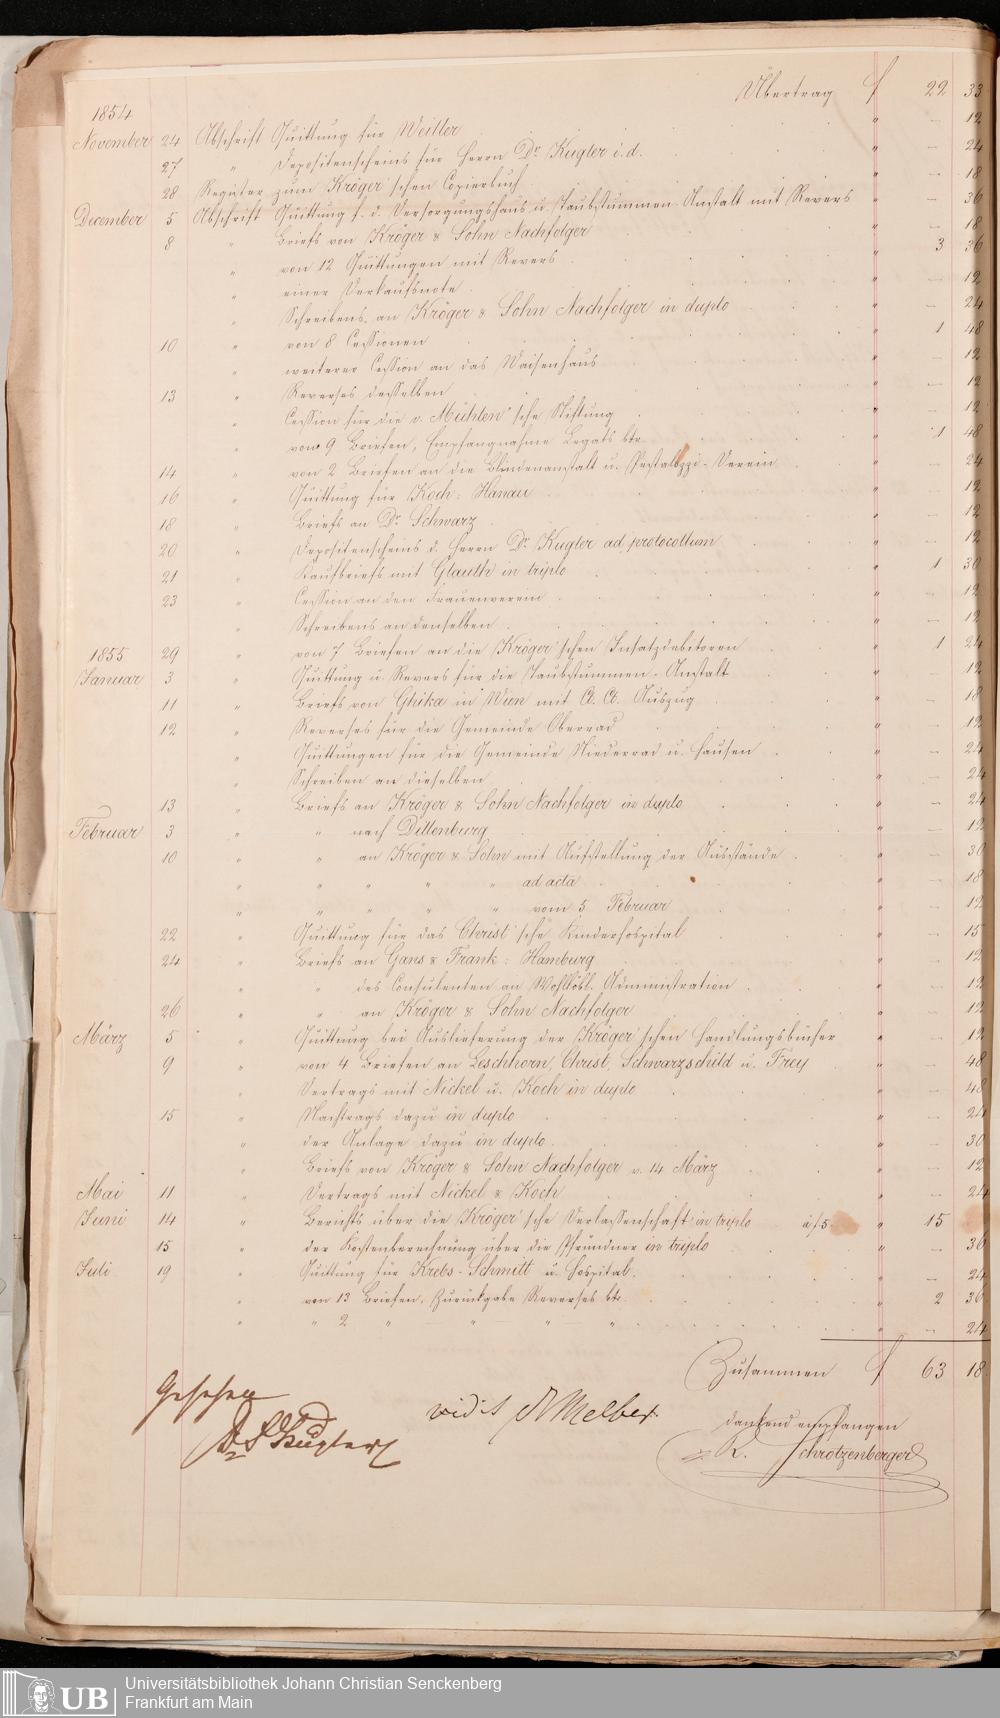 Übertrag f 22 33
1854
November 24 Abschrift Quittung für Weitler " — 12
27 " Depositenscheins für Herrn Dr. Kugler i. d. " — 24
28 Register zum Kröger'schen Copierbuch " — 18
December 5 Abschrift Quittung f. d. Versorgungshaus u. Taubstummen-Anstalt mit Revers " — 36
8 " Briefs von Kröger & Sohn Nachfolger " — 18
" von 12 Quittungen mit Revers " 3 36
" einer Verkaufsnote " — 12
" Schreibens an Kröger & Sohn Nachfolger in duplo " — 24
10 " von 8 Cessionen " 1 48
" weiterer Cession an das Waisenhaus " — 12
13 " Reverses desselben " — 12
" Cession für die v. Mühlen'sche Stiftung " — 12
" von 9 Briefen, Empfangnahme Legats btr. " 1 48
14 " von 2 Briefen an die Blindenanstalt u. Pestalozzi-Verein " — 24
16 " Quittung für Koch: Hanau " — 12
18 " Briefs an Dr. Schwarz " — 12
20 " Depositenscheins d. Herrn Dr. Kugler ad protocollum " — 12
21 " Kaufbriefs mit Glauth in triplo " 1 30
23 " Cession an den Frauenverein " — 12
" Schreibens an denselben " — 12
1855 29 " von 7 Briefen an die Kröger'schen Insatzdebitoren " 1 24
Januar 3 " Quittung u. Revers für die Taubstummen-Anstalt " — 12
11 " Briefs von Ghika in Wien mit C. Ct. Auszug " — 18
12 " Reverses für die Gemeinde Oberrad " — 12
" Quittungen für die Gemeinde Niederrad u. Hausen " — 24
" Schreiben an dieselben " — 24
13 " Briefs an Kröger & Sohn Nachfolger in duplo " — 24
Februar 3 " " nach Dillenburg " — 12
10 " " an Kröger & Sohn mit Aufstellung der Ausstände " — 30
" " " " " ad acta " — 18
" " " " " vom 3 Februar " — 12
22 " Quittung für das Christ'sche Kinderhospital " — 15
24 " Briefs an Gans & Frank: Hamburg " — 12
" " des Consulenten an Wohllöbl. Administration " — 12
26 " " an Kröger & Sohn Nachfolger " — 12
März 5 " Quittung bei Auslieferung der Kröger'schen Handlungsbücher " — 12
9 " von 4 Briefen an Leschhorn, Christ, Schwarzschild u. Frey " — 48
" Vertrags mit Nickel u. Koch in duplo " — 48
15 " Nachtrags dazu in duplo " — 24
" der Anlage dazu in duplo " — 30
" Briefs von Kröger & Sohn Nachfolger v. 14 März " — 12
Mai 11 " Vertrags mit Nickel & Koch " — 24
Juni 14 " Berichts über die Kröger'sche Verlassenschaft in triplo à f 5 " 15
15 " der Kostenberechnung über die Pfründner in triplo " — 36
Juli 19 " Quittung für Krebs-Schmitt u. Hospital " — 24
" von 13 Briefen, Zurückgabe Reverses btr. " 2 36
" " 2 " — " — " — " " — 24
Zusammen f 63 18
Gesehen
Dr. Kugler
vidit Melber
dankend empfangen
K. Schrotzenberger
UB
Universitätsbibliothek Johann Christian Senckenberg
Frankfurt am Main